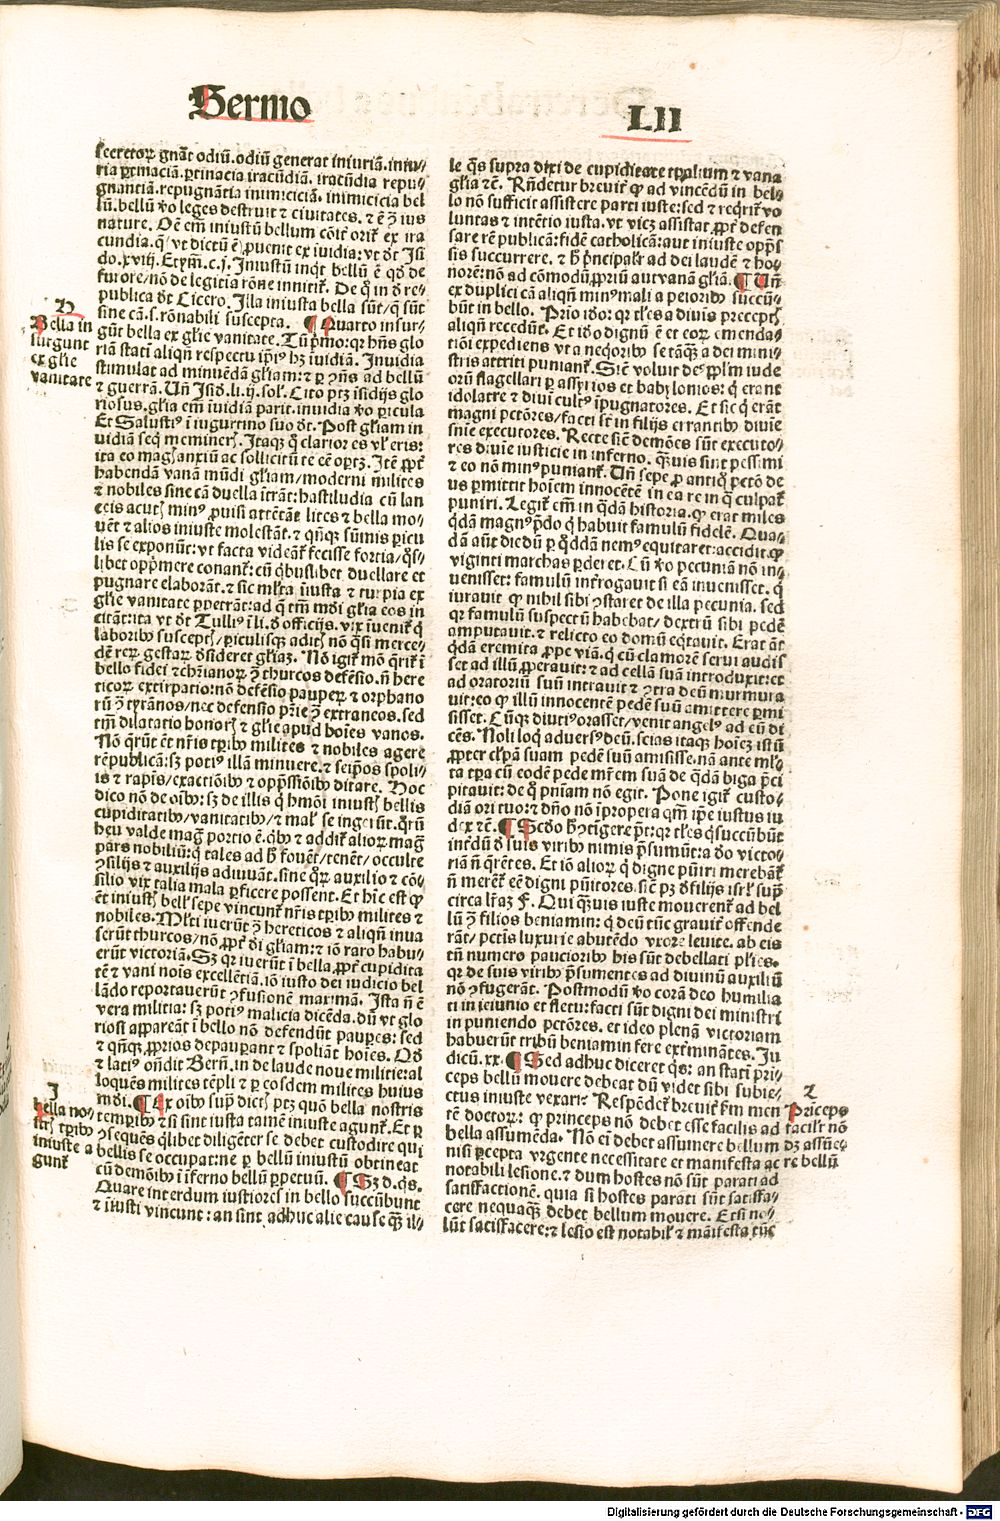 Sermo
LII
secretorꝝ gnãt odiũ. odiũ generat iniuriã. iniu⸗
ria ꝑtinaciã. ꝑtinacia iracũdiã. iracũdia repu⸗
gnantiã. repugnãtia inimiciciã. inimicicia bel
lũ. bellũ ꝟo leges destruit ⁊ ciuitates. ⁊ ẽ ꝯ̃ ius
nature. Oẽ em̃ iniustũ bellum cõit̃ orit̃ ex ira
cundia. q̃ (vt dictũ ẽ) ꝓuenit ex iuidia: vt dt̃ Isi
do. xviij. Etym. c. j. Iniustũ inqt̃ bellũ ẽ qd̃ de
furore / nõ de legitia rõne innitit̃. De q̃ in d̃ re⸗
publica dt̃ Cicero. Illa iniusta bella sũt / q̃ sũt
sine cã. s. rõnabili suscepta. ¶ Quarto insur⸗
gũt bella ex glie vanitate. Tũ pͥmo: qꝛ hñs glo
riã stati aliqñ respectu ip̃iꝰ hꝫ iuidiã. Inuidia
stimulat ad minuẽdã gliam: ⁊ ꝑ ꝯñs ad bellũ
⁊ guerrã. Uñ Isid̃. li. ij. sol̃. Cito ptꝫ isidijs glo
riosus. glia em̃ iuidiam parit. inuidia ꝟo ꝑicula
Et Salustiꝰ ĩ iugurtino suo dt̃. Post gliam in
uidiã seq̃ memineritꝭ. Itaqꝫ q̃ clarior es vl̃ eris:
ita eo magꝭ anxiũ ac sollicitũ te eẽ oportꝫ. Itẽ ꝓpt̃
habendã vanã mũdi gliam / moderni milites
⁊ nobiles sine cã duella ĩtrãt: hastiludia cũ lan
ceis acutꝭ minꝰ ꝓuisi attẽtãt. lites ⁊ bella mo⸗
uẽt ⁊ alios iniuste molestãt. ⁊ qñqꝫ sũmis ꝑicu
lis se exponũt: vt facta videãt̃ fecisse fortia / q̃s⸗
libet opp̃mere conant̃: cũ qͥbuslibet duellare et
pugnare elaborãt. ⁊ sic ml̃ta ĩiusta ⁊ turpia ex
glie vanitate ꝑpetrãt: ad q̃ tm̃ mũdi glia eos in
citãt: ita vt dt̃ Tulliꝰ ĩ li. d̃ officijs. vix ĩuenit̃ q̃
laboribꝰ susceptꝭ / ꝑiculisqꝫ aditꝭ nõ q̃si merce⸗
dẽ reꝝ gestaꝝ d̃sideret gliaꝫ. Nõ igit̃ mõ q̃rit̃ ĩ
bello fidei ⁊ chr̃ianoꝝ ꝯ̃ thurcos defẽsio. ñ here
ticoꝝ extirpatio: nõ defẽsio pauperꝝ ⁊ orphano
rũ ꝯ̃ tyrãnos / nec defensio pr̃ie ꝯ̃ extraneos. sed
tm̃ dilatatio honorꝭ ⁊ glie apud hoĩes vanos.
Nõ q̃rũt ẽt nr̃is tp̃ribꝰ milites ⁊ nobiles agere
rẽpublicã: sꝫ potiꝰ illã minuere. ⁊ seip̃os spoli⸗
is ⁊ rapinis / exactiõibꝰ ⁊ opp̃ssiõibꝰ ditare. Hoc
dico nõ de oĩbꝰ: sꝫ de illis q̃ hmõi iniustꝭ bellis
cupiditatibꝰ / vanitatibꝰ / ⁊ mal̃ se ingerũt. q̃rũ
heu valde magᷓ portio ẽ. qͥbꝰ ⁊ addit̃ alioꝝ magᷓ
pars nobiliũ: q̃ tales ad h̃ fouẽt / tenẽt / occulte
ꝯsilijs ⁊ auxilijs adiuuãt. sine q̃ꝝ auxilio ⁊ cõ⸗
silio vix talia mala ꝑficere possent. Et hĩc est ꝙ
ẽt iniustꝭ bell̃ sepe vincunt̃ nr̃is tp̃ribꝰ milites ⁊
nobiles. Ml̃ti iuerũt ꝯ̃ hereticos ⁊ aliqñ inua
serũt thurcos / nõ ꝓpt̃ dĩ gliam: ⁊ iõ raro habu⸗
erũt victoriã. Sꝫ qꝛ iuerũt ĩ bella ꝓpt̃ cupidita
tẽ ⁊ vani noĩs excellẽtiã. iõ iusto dei iudicio bel
lãdo reportauerũt ꝯfusionẽ maximã. Ista ñ ẽ
vera militia: sꝫ potiꝰ malicia dicẽda. dũ vt glo
riosi appareãt ĩ bello nõ defendũt pauꝑes: sed
⁊ qñqꝫ ꝓprios depauꝑant ⁊ spoliãt hoĩes. Qd̃
⁊ latiꝰ oñdit Berñ. in de laude noue militie: al
loquẽs milites tẽpli ⁊ ꝑ eosdem milites huius
mũdi. ¶ Ex oĩbꝰ supͣ dictꝭ ptꝫ quõ bella nostris
temp̃ibꝰ ⁊ si sint iusta tamẽ iniuste agunt̃. Et ꝑ
ꝯsequẽs q̃libet diligẽter se debet custodire qui
bellis se occupat: ne ꝑ bellũ iniustũ obtineat
cũ demõibꝰ ĩ iferno bellũ ꝑpetuũ. ¶ Sꝫ d. q̃s.
Quare interdum iustiores in bello succũbunt
⁊ ĩiusti vincunt: an sint adhuc alie cause q̃ꝫ il⸗
H
Bella in
surgunt
ex glie
vanitate
I
Bella no⸗
stꝭ tp̃ribꝰ
iniuste a
gunt̃
le q̃s supra dixi de cupiditate tp̃alium ⁊ vana
glia ⁊c̃. Rñdetur breuit̃ ꝙ ad vincẽdũ in bel⸗
lo nõ sufficit assistere parti iuste: sed ⁊ reqͥrit̃ vo
luntas ⁊ intẽtio iusta. vt vicꝫ assistat ꝓpt̃ defen
sare rẽ publicã: fidẽ catholicã: aut iniuste opp̃s
sis succurrere. ⁊ h̃ pͥncipalr̃ ad dei laudẽ ⁊ ho⸗
norẽ: nõ ad cõmodũ ꝓpriũ aut vanã gliã. ¶ Uñ
ex duplici cã aliqñ minꝰ mali a peioribꝰ succũ⸗
būt in bello. Pͥrio iõo: qꝛ tl̃es a diuis preceptꝭ
aliqñ recedũt. Et iõo dignũ ẽ et eoꝝ emenda⸗
tiõi expediens vt a neq̃oribꝰ se tãqꝫ a dei mini⸗
stris attriti puniant̃. Sic̃ voluit deꝰ ppl̃m iude
orũ flagellari ꝑ assyrios et babylonios: q̃ erant
idolatre ⁊ diuĩ cultꝰ ĩpugnatores. Et sic q̃ erãt
magni pctõres / facti st̃ in filijs errantibꝰ diuĩe
snĩe executores. Recte sic̃ demões sũt executo⸗
res diuĩe iusticie in inferno. q̃uis sint pessimi
⁊ eo nõ minꝰ puniant̃. Uñ sepe ꝓ antiq̃ pctõ de
us ꝑmittit hoĩem innocẽtẽ in ea re in q̃ culpat̃
puniri. Legit̃ em̃ in q̃dã historia. ꝙ erat miles
q̃dã magnꝰ p̃do q̃ habuit famulũ fidelẽ. Qua⸗
dã aũt die dũ ꝑ q̃ddã nemꝰ equitaret: accidit ꝙ
viginti marchas ꝑderet. Cũ ꝟo pecuniã nõ in⸗
uenisset: famulũ inꝉrogauit si eã inuenisset. q̃
iurauit ꝙ nihil sibi ꝯstaret de illa pecunia. sed
qꝛ famulũ suspectũ habebat / dextrũ sibi pedẽ
amputauit. ⁊ relicto eo domũ eqͥtauit. Erat aũt
q̃dã eremita ꝓpe viã. q̃ cũ clamorẽ serui audis
set ad illũ ꝓperauit: ⁊ ad cellã suã introduxit: et
ad oratoriũ suũ intrauit ⁊ ꝯtra deũ murmura
uit: eo ꝙ illũ innocentẽ pedẽ suũ amittere ꝑmi
sisset. Cũqꝫ diutiꝰ orasset / venit angelꝰ ad eũ di
cẽs. Noli loq̃ aduersꝰ deũ. scias itaqꝫ hoĩeꝫ istũ
ꝓpter culpã suam pedẽ suũ amisisse. nã ante ml̃
ta tp̃a cũ eodẽ pede mr̃em suã de q̃dã biga p̃ci
pitauit: de q̃ pñiam nõ egit. Pone igit̃ custo⸗
diã ori tuo: ⁊ dño nõ ĩpropera qm̃ ip̃e iustus iu
dex ⁊c̃. ¶ Scd̃o h̃ ꝯtigere pt̃: qꝛ tl̃es q̃ succũbũt
intẽdũt d̃ suis viribꝰ nimis p̃sumũt: a dõ victo⸗
riã ñ q̃rẽtes. Et iõ alioꝝ q̃ digne puniri merebãt̃
ñ meret̃ eẽ digni pũitores. sic̃ pꝫ d̃ filijs isrl̃ supͣ
circa lr̃aꝫ F. Qui q̃uis iuste mouerent̃ ad bel
lũ ꝯ̃ filios beniamin: q̃ deũ tũc grauit̃ offende
rãt / pctĩs luxurie abutẽdo vxore leuite. ab eis
tñ numero paucioribꝰ his sũt debellati pl̃ies.
qꝛ de suis viribꝰ p̃sumentes ad diuinũ auxiliũ
nõ ꝯfugerãt. Postmodũ ꝟo corã deo humilia
ti in ieiunio et fletu: facti sũt digni dei ministri
in puniendo pctõres. et ideo plenã victoriam
habuerũt tribũ beniamin fere exꝉminãtes. Ju
dicũ. xx. ¶ Sed adhuc diceret q̃s: an stati pͥri⸗
ceps bellũ mouere debeat dũ videt sibi subie⸗
ctus iniuste vexari? Respẽdet̃ breuit̃ ẜm men
tẽ doctoꝝ: ꝙ princeps nõ debet esse facilis ad
bella assumẽda. Nõ eĩ debet assumere bellum
nisi ꝑcepta vrgente necessitate et manifesta ac
notabili lesione. ⁊ dum hostes nõ sũt parati ad
satisfactionẽ. quia si hostes parati sũt satisfa⸗
cere nequaqꝫ debet bellum mouere. Et si no⸗
lũt satisfacere: ⁊ lesio est notabil̃ ⁊ mãifesta tũc
L
Prĩceps
facilr̃ nõ
dꝫ assũe⸗
re bellũ
Digitalisierung gefördert durch die Deutsche Forschungsgemeinschaft - DFG